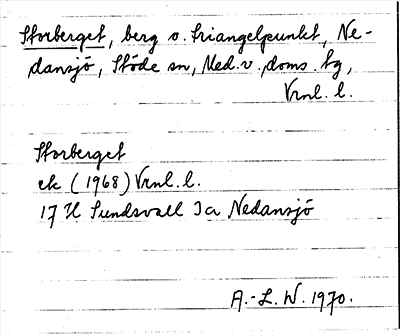 Storberget, berg o. triangelpunkt, Ne-
dansjö, Stöde sn, Med. v. doms. tg,
Vrnl. l.
Storberget
ek (1968) Vrnl. l.
17 H Sundsvall 3a Nedansjö
A.-L. W. 1970.